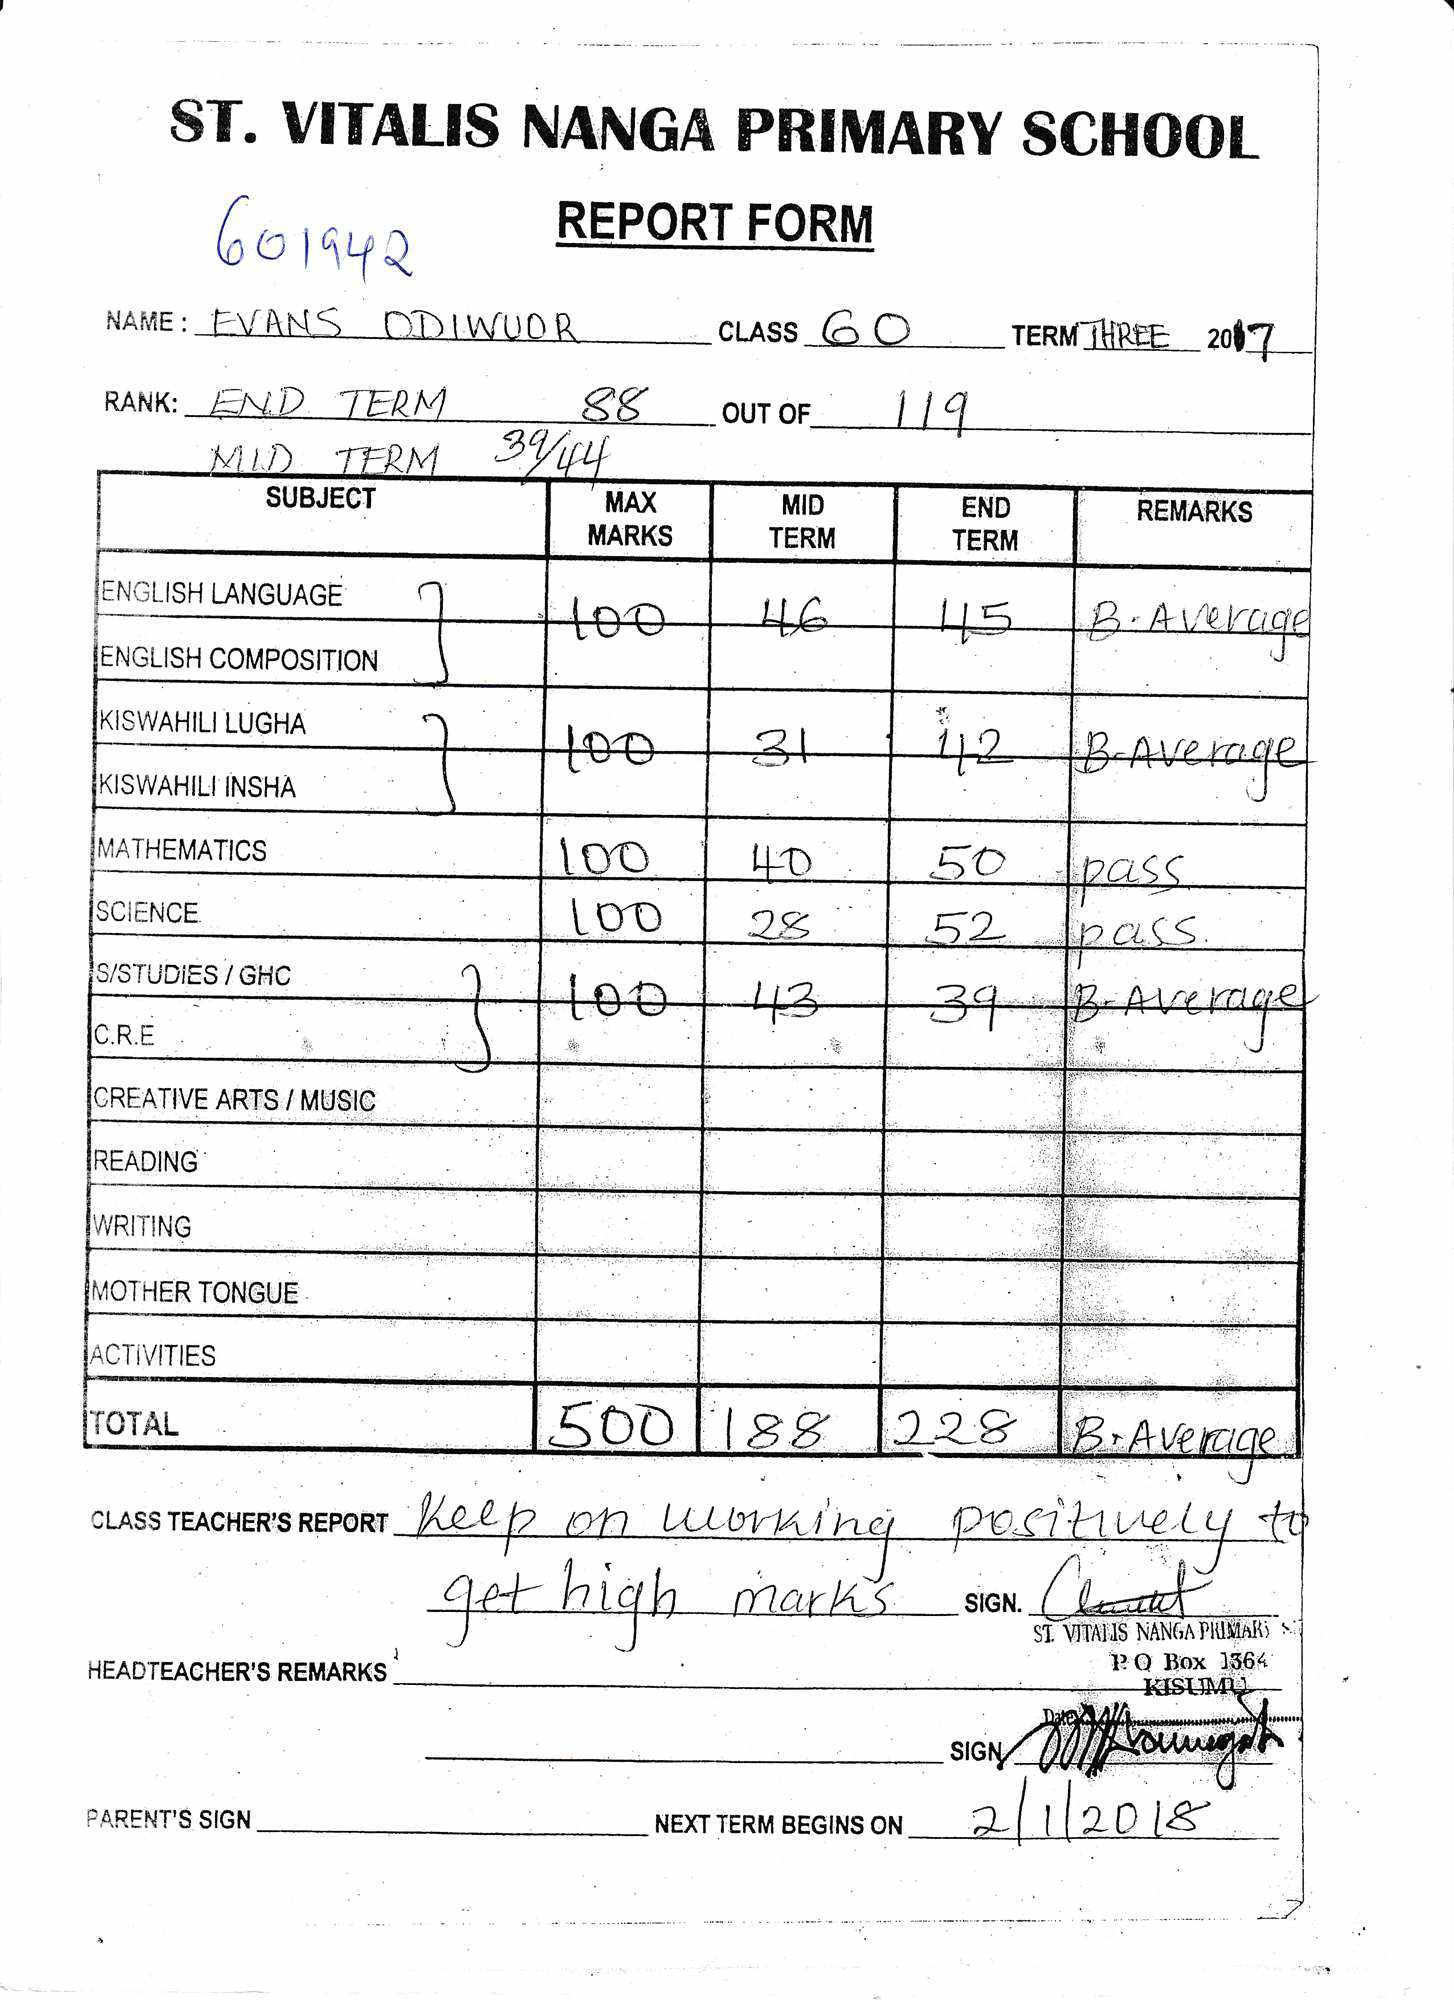 ST. VITALIS NANGA PRIMARY SCHOOL
REPORT FORM
601942
NAME: EVANS ODIWUOR CLASS 6O TERM THREE 2017
RANK: END TERM 88 OUT OF 119
MID TERM 39/44
SUBJECT MAX MARKS MID TERM END TERM REMARKS
ENGLISH LANGUAGE
100 46 45 B-Average
ENGLISH COMPOSITION
KISWAHILI LUGHA
100 31 42 B-Average
KISWAHILI INSHA
MATHEMATICS 100 40 50 pass
SCIENCE 100 28 52 pass
S/STUDIES / GHC
100 43 39 B-Average
C.R.E
CREATIVE ARTS / MUSIC
READING
WRITING
MOTHER TONGUE
ACTIVITIES
TOTAL 500 188 228 B-Average
CLASS TEACHER'S REPORT Keep on working positively to
get high marks SIGN.
ST. VITALIS NANGA PRIMARY
P.O Box 1364
HEADTEACHER'S REMARKS
KISUMU
Date
SIGN
PARENT'S SIGN NEXT TERM BEGINS ON 2/1/2018